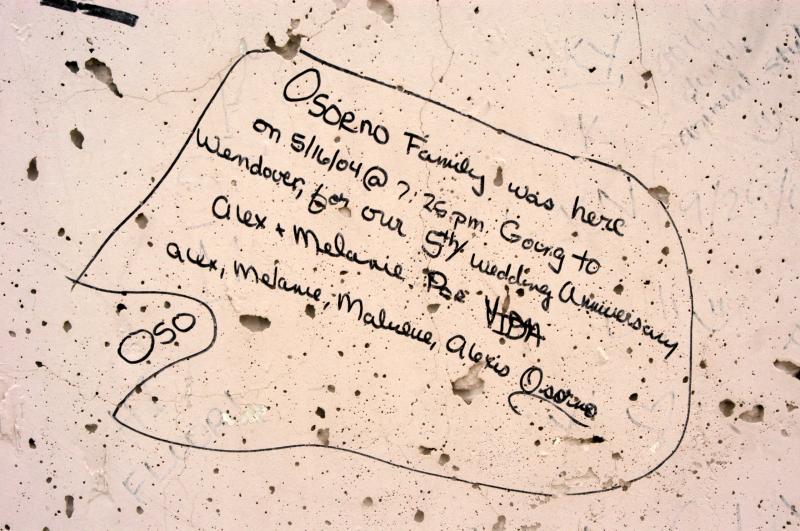 Osorno Family was here
on 5/16/04 @ 7:25 pm Going to
Wendover, for our 5th wedding Anniversary
Alex + Melanie. Por VIDA
Alex, Melanie, Malnene, Alexis Osorno
OSO